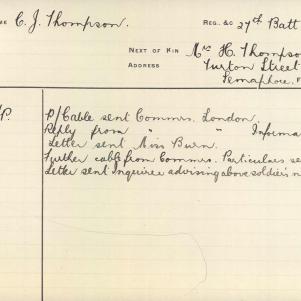 C. J. Thompson.
REG. &C 27th Batt
NEXT OF KIN Mrs H. Thompson
ADDRESS Turton Street
Semaphore,
P/Cable sent Commrs. London.
Reply from " " Informa
Letter sent Miss Burn.
Further cable from Commrs. Particulars se
Letter sent Inquirer advising above soldier's n